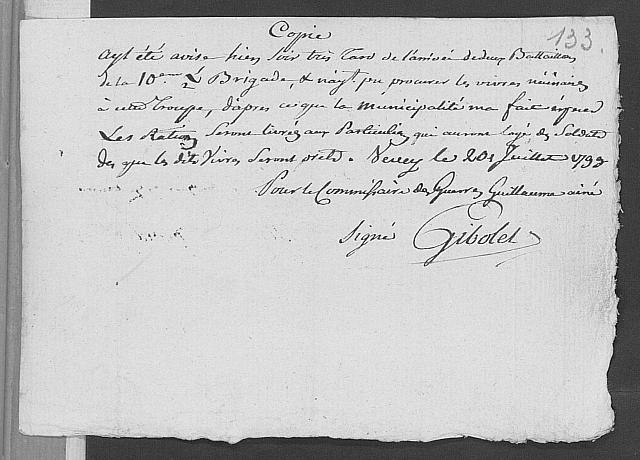 Copie
133.
Ayt été avisé hier soir très tard de l'arrivée de deux Battaillons
de la 10eme ½ Brigade, & n'aÿt pu procurer les vivres nécéssaires
à cette Troupe, d'après ce que la Municipalité m'a fait
Les Rations seront livrées aux Particuliers qui auront logé des Soldats
des que les dits Vivres seront prets. Vevey le 20 Juillet
Pour le Commissaire des Guerres Guillaume ainé
Signé Gibolet